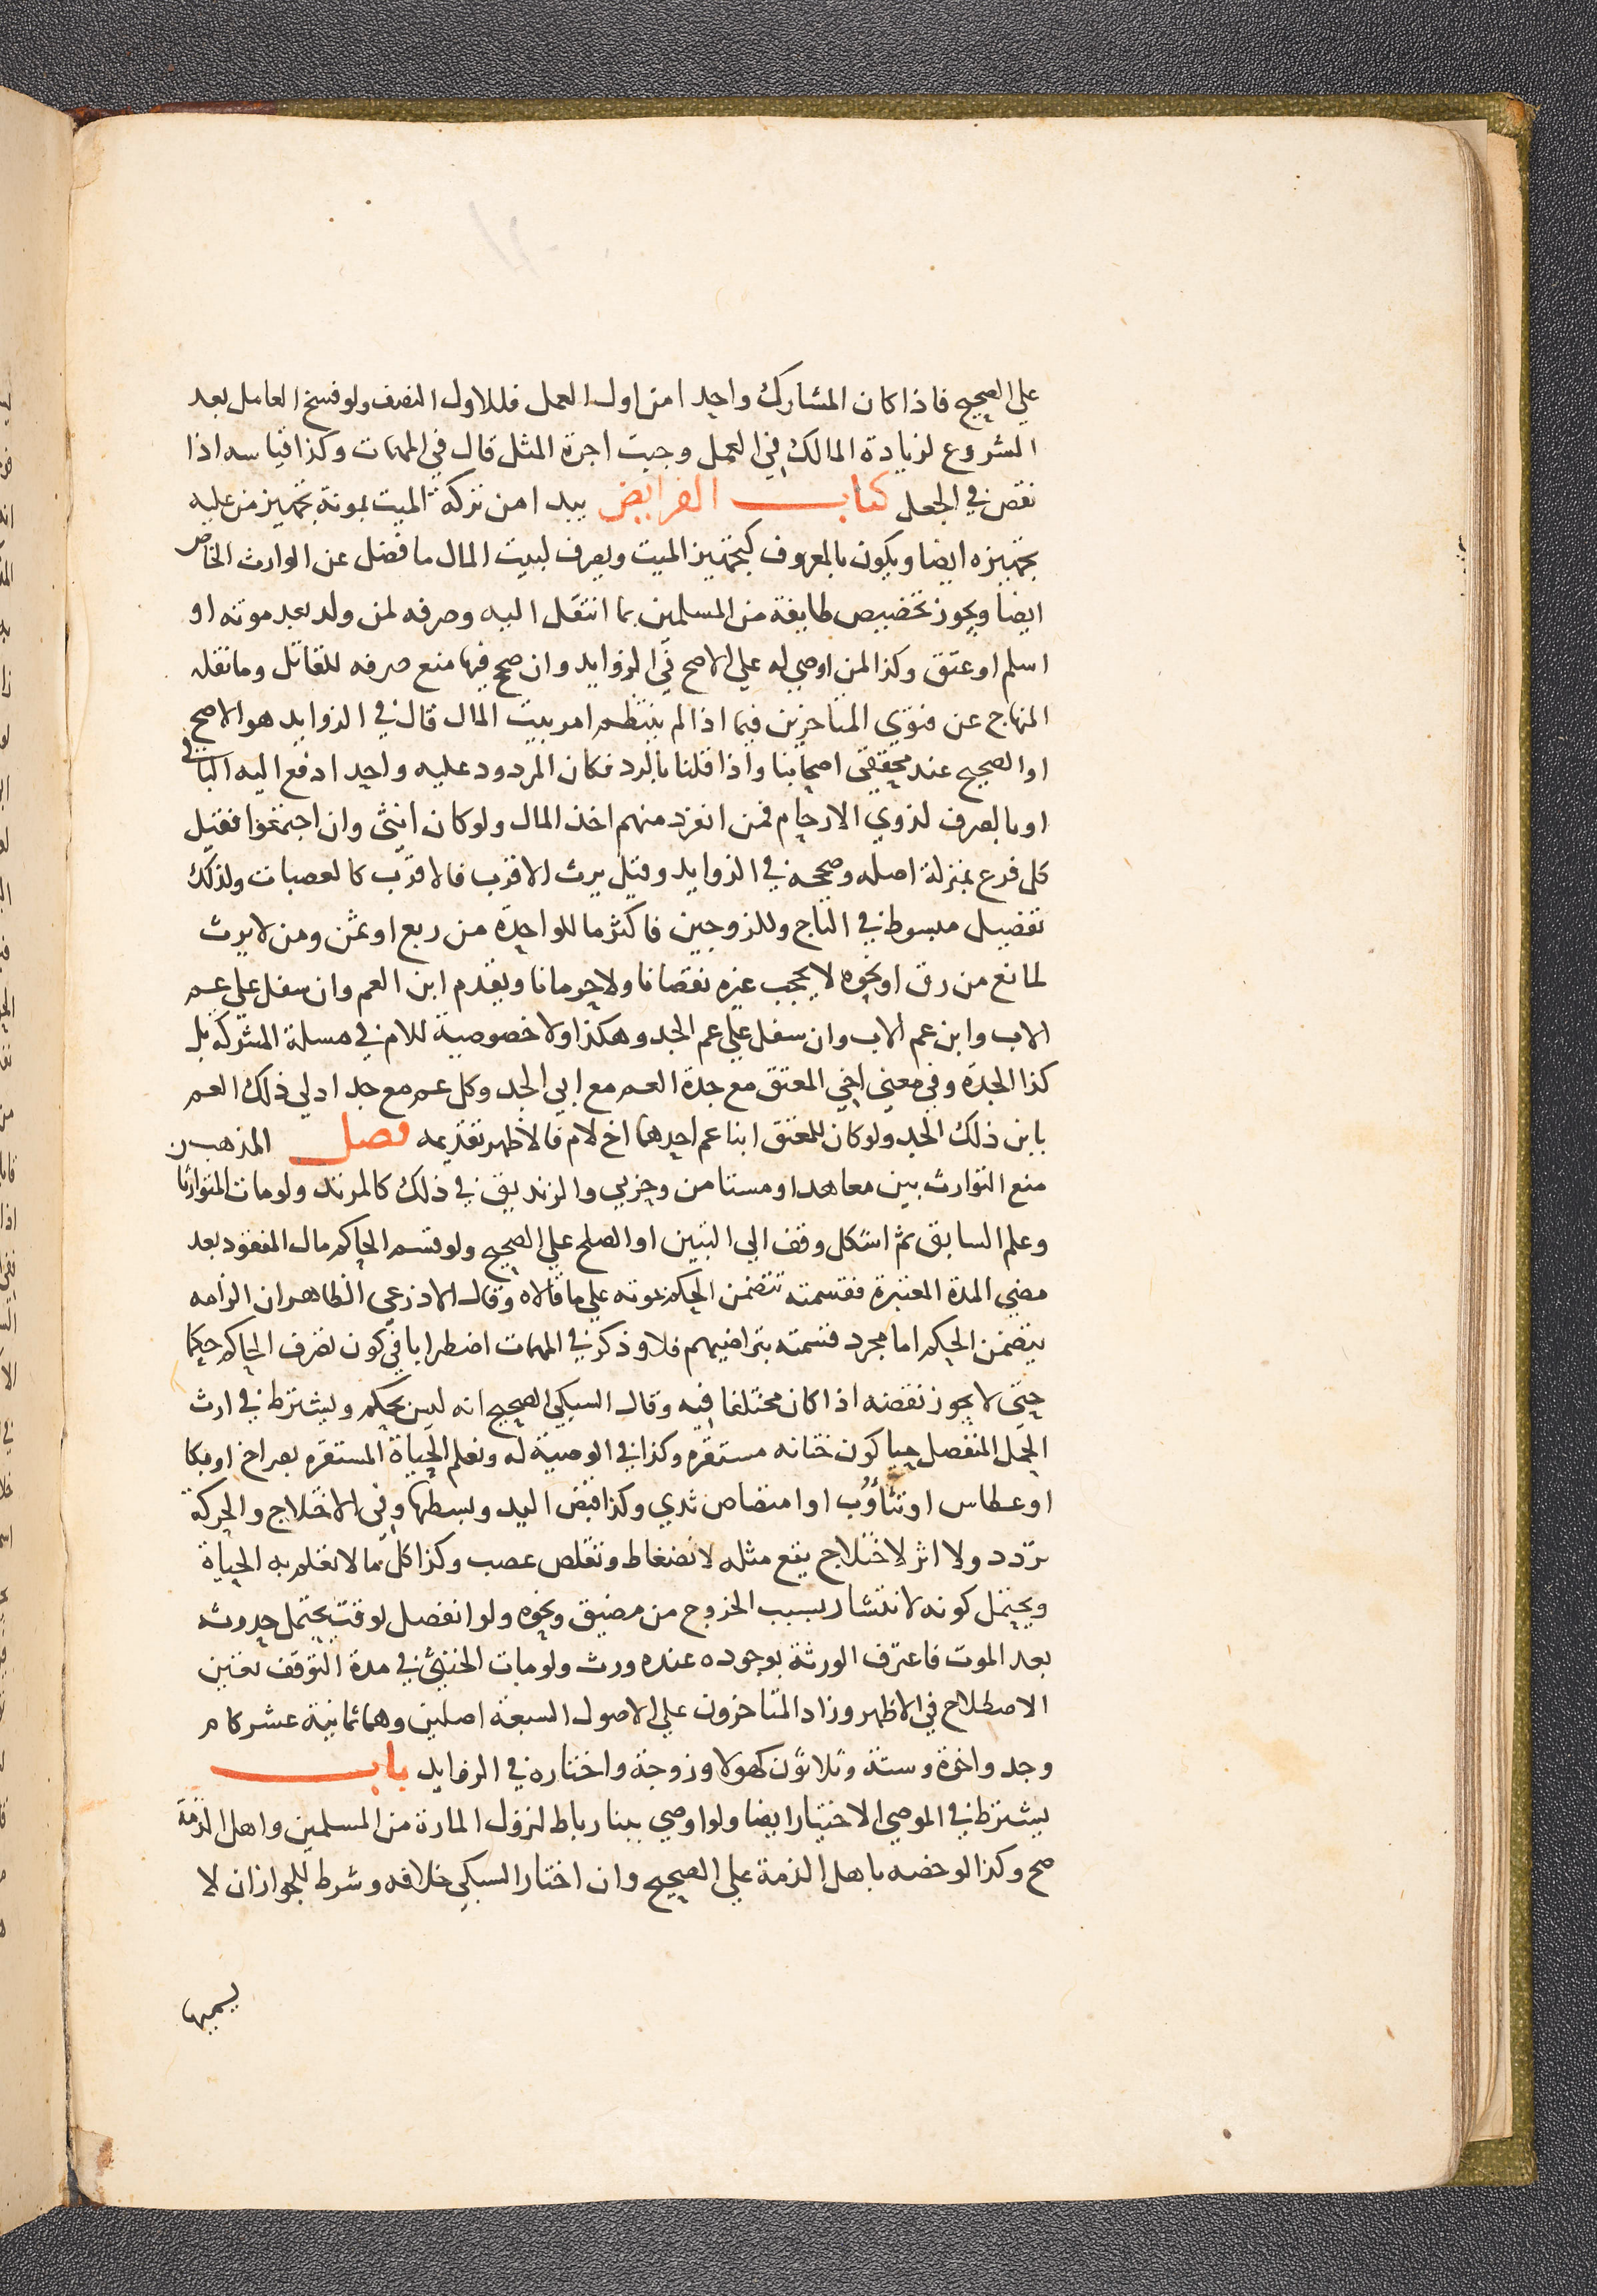 علي الصحيح فاذا كان المشارك واحدا من اول العمل فللاول النصف ولو فسخ العامل بعد
الشروع لزيادة المالك في العمل وجبت اجرة المثل قال في المهمات وكذا قياسه اذا
نقص في الجعل كتاب الفرايض يبدا من تركة الميت بمونة تجهيز من عليه
تجهيزه ايضا ويكون بالمعروف كتجهيز الميت ويصرف لبيت المال ما فضل عن الوارث الخاص
ايضا ويجوز تخصيص طايفة من المسلمين بما انتقل اليه وصرفه لمن ولد بعد موته او
اسلم او عتق وكذا لمن اوصي له علي الاصح في الزوايد وان صح فيها منع صرفه للقاتل وما نقله
المنهاج عن فتوي المتاخرين فيما اذا لم ينتظم امر بيت المال قال في الزوايد هو الاصح
او الصحيح عند محققي اصحابنا واذا قلنا بالرد فكان المردود عليه واحدا دفع اليه الباقي
او بالصرف لذوي الارحام فمن انفرد منهم اخذ المال ولو كان انثي وان اجتمعوا فقيل
كل فرع بمنزلة اصله وصححه في الزوايد وقيل يرث الاقرب فالاقرب كالعصبات ولذلك
تفصيل مبسوط في التاج وللزوجين فاكثر ما للواحدة من ربع او ثمن ومن لا يرث
لمانع من رق او نحوه لا يحجب غيره نقصانا ولا حرمانا ويقدم ابن العم وان سفل علي عم
الاب وابن عم الاب وان سفل علي عم الجد وهكذا ولا خصوصية للام في مسلة المشركة بل
كذا الجدة وفي معني اخي المعتق مع جدة العم مع ابي الجد وكل عم مع جد ادلي ذلك العم
بابن ذلك الجد ولو كان للمعتق ابنا عم احدهما اخ لام فالاظهر تقديمه فصل المذهب
منع التوارث بين معاهد او مستامن وحربي والزنديق في ذلك كالمرتد ولو مات المتوارثا
وعلم السابق ثم اشكل وقف الي التبين او الصلح علي الصحيح ولو قسم الحاكم مال المفقود بعد
مضي المدة المعتبرة فقسمته تتضمن الحكم بموته علي ما قالاه وقال الاذرعي الظاهر ان الزامه
يتضمن الحكم اما مجرد قسمته بتراضيهم فلا وذكر في المهمات اضطرابا في كون تصرف الحاكم حكما
حتي لا يجوز نقضه اذا كان مختلفا فيه وقال السبكي الصحيح انه ليس بحكم ويشترط في ارث
الحمل المنفصل حيا كون مستقرة وكذا في الوصية له وتعلم الحياة المستقرة بصراخ او بكا
او عطاس او تثاؤب او امتصاص ثدي وكذا قبض اليد وبسطها وفي الاختلاج والحركة
تردد ولا اثر لاختلاج يقع مثله لانضغاط وتقلص عصب وكذا كل ما لا تعلم به الحياة
ويحتمل كونه لانتشار بسبب الخروج من مضيق ونحوه ولو انفصل لوقت يحتمل حدوثه
بعد الموت فاعترف الورثة بوجوده عنده ورث ولو مات الخنثي في مدة التوقف تعين
الاصطلاح في الاظهر وزاد المتاخرون علي الاصول السبعة اصلين وهما ثمانية عشر كام
وجد واخوة وستة وثلاثون كهولا وزوجة واختاره في الزوايد باب
يشترط في الموصي الاختيار ايضا ولو اوصي ببنا رباط لنزول المارة من المسلمين واهل الذمة
صح وكذا لو خصه باهل الذمة علي الصحيح وان اختار السبكي خلافه وشرط للجواز ان لا
يسميها